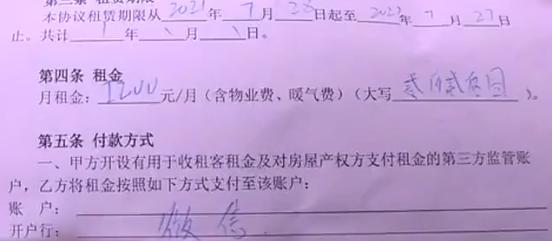 第三条 租赁期限
本协议租赁期限从2021年7月28日起至2022年7月27日
止。共计1年\月\日。
第四条 租金
月租金：1200元/月（含物业费、暖气费）（大写）。
第五条 付款方式
一、甲方开设有用于收租客租金及对房屋产权方支付租金的第三方监管账
户，乙方将租金按照如下方式支付至该账户：
账 户：
开户行：微信